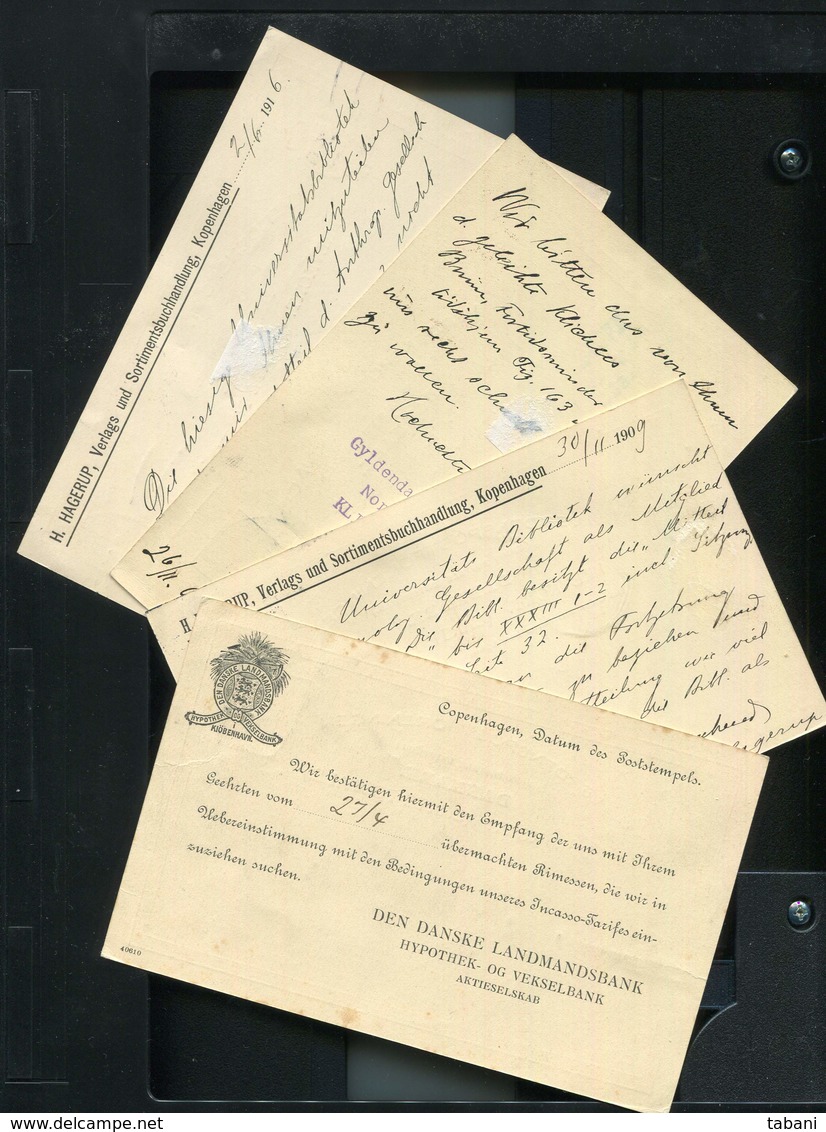 H. HAGERUP, Verlags und Sortimentsbuchhandlung, Kopenhagen 2/6 1916.
Die hiesige Universitätsbibliotek
Ihnen mitzuteilen
d. Anthrop. Gesellsch
nicht
Wir bitten uns von Ihrem
d. geliehte Klichees
Fig. 163
uns
zu wollen.
Gyldenda
No
KL
26/11.
H. HAGERUP, Verlags und Sortimentsbuchhandlung, Kopenhagen 30/11 1909
Universitäts Bibliotek wünscht
Gesellschaft als Mitglied
Die Bibl. besitzt die "Mitteil
" bis XXXIII 1-2 incl. Sitzungs
Seite 32.
die Fortsetzung
zu beziehen und
wie viel
der Bibl. als
agerup
DEN DANSKE LANDMANDSBANK
HYPOTHEK- OG VEKSELBANK
I
KJÖBENHAVN.
Copenhagen, Datum des Poststempels.
Wir bestätigen hiermit den Empfang der uns mit Ihrem
Geehrten vom 27/4 übermachten Rimessen, die wir in
Uebereinstimmung mit den Bedingungen unseres Incasso-Tarifes ein-
zuziehen suchen.
DEN DANSKE LANDMANDSBANK
HYPOTHEK- OG VEKSELBANK
AKTIESELSKAB
40610
tabani